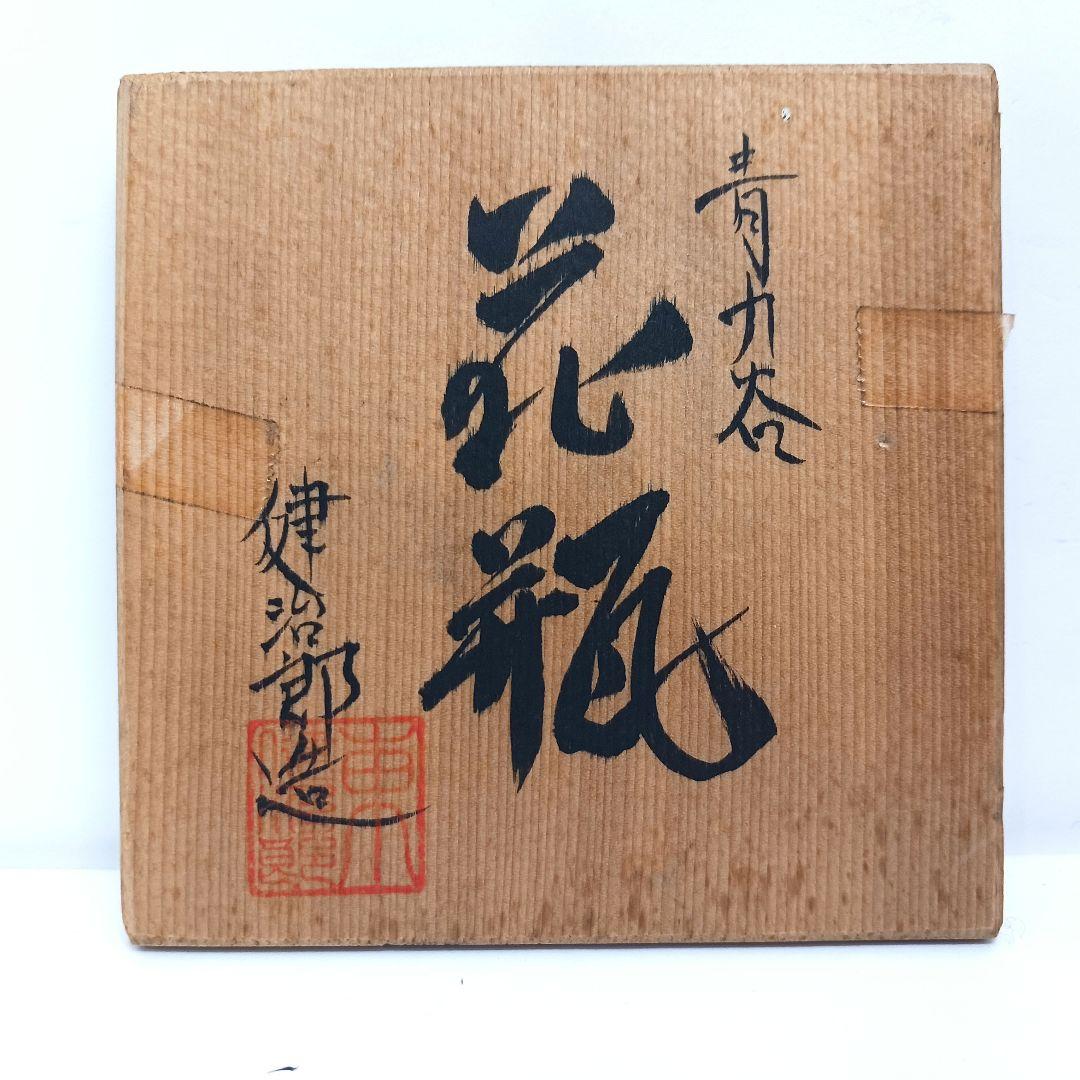 青九谷
花瓶
健治郎造